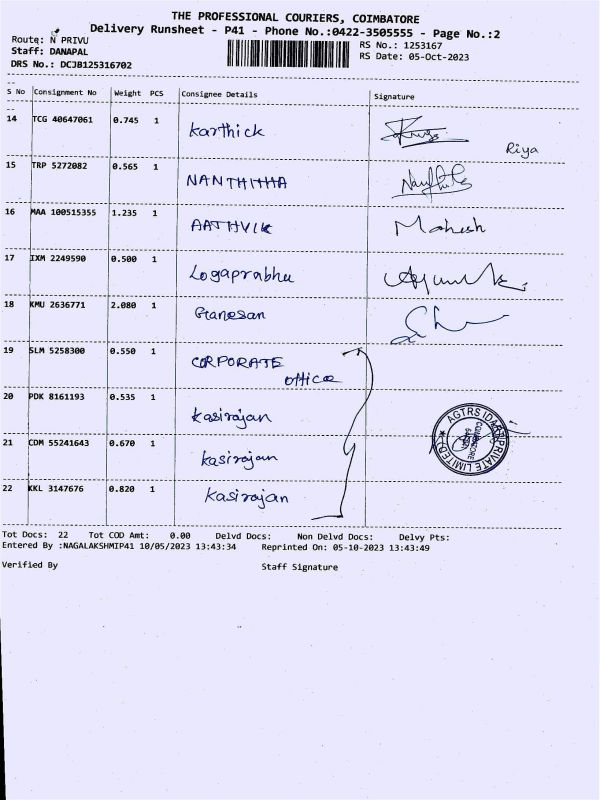 THE PROFESSIONAL COURIERS, COIMBATORE
Delivery Runsheet - P41 - Phone No.:0422-3505555 - Page No.:2
Route: N PRIVU
RS No.: 1253167
Staff: DANAPAL
RS Date: 05-Oct-2023
DRS No.: DCJB125316702
S No Consignment No Weight PCS Consignee Details Signature
14 TCG 40647061 0.745 1 Karthick Riya
15 TRP 5272082 0.565 1 NANTHITHA
16 MAA 100515355 1.235 1 AATHVIK Mahesh
17 IXM 2249590 0.500 1 Logaprabhu
18 KMU 2636771 2.080 1 Ganesan
19 SLM 5258300 0.550 1 CORPORATE
office
20 PDK 8161193 0.535 1 Kasirajan
21 CDM 55241643 0.670 1 Kasirajan
22 KKL 3147676 0.820 1 Kasirajan
PRIVATE LIMITED
COIMBATORE
Tot Docs: 22 Tot COD Amt: 0.00 Delvd Docs: Non Delvd Docs: Delvy Pts:
Entered By :NAGALAKSHMIP41 10/05/2023 13:43:34 Reprinted On: 05-10-2023 13:43:49
Verified By Staff Signature